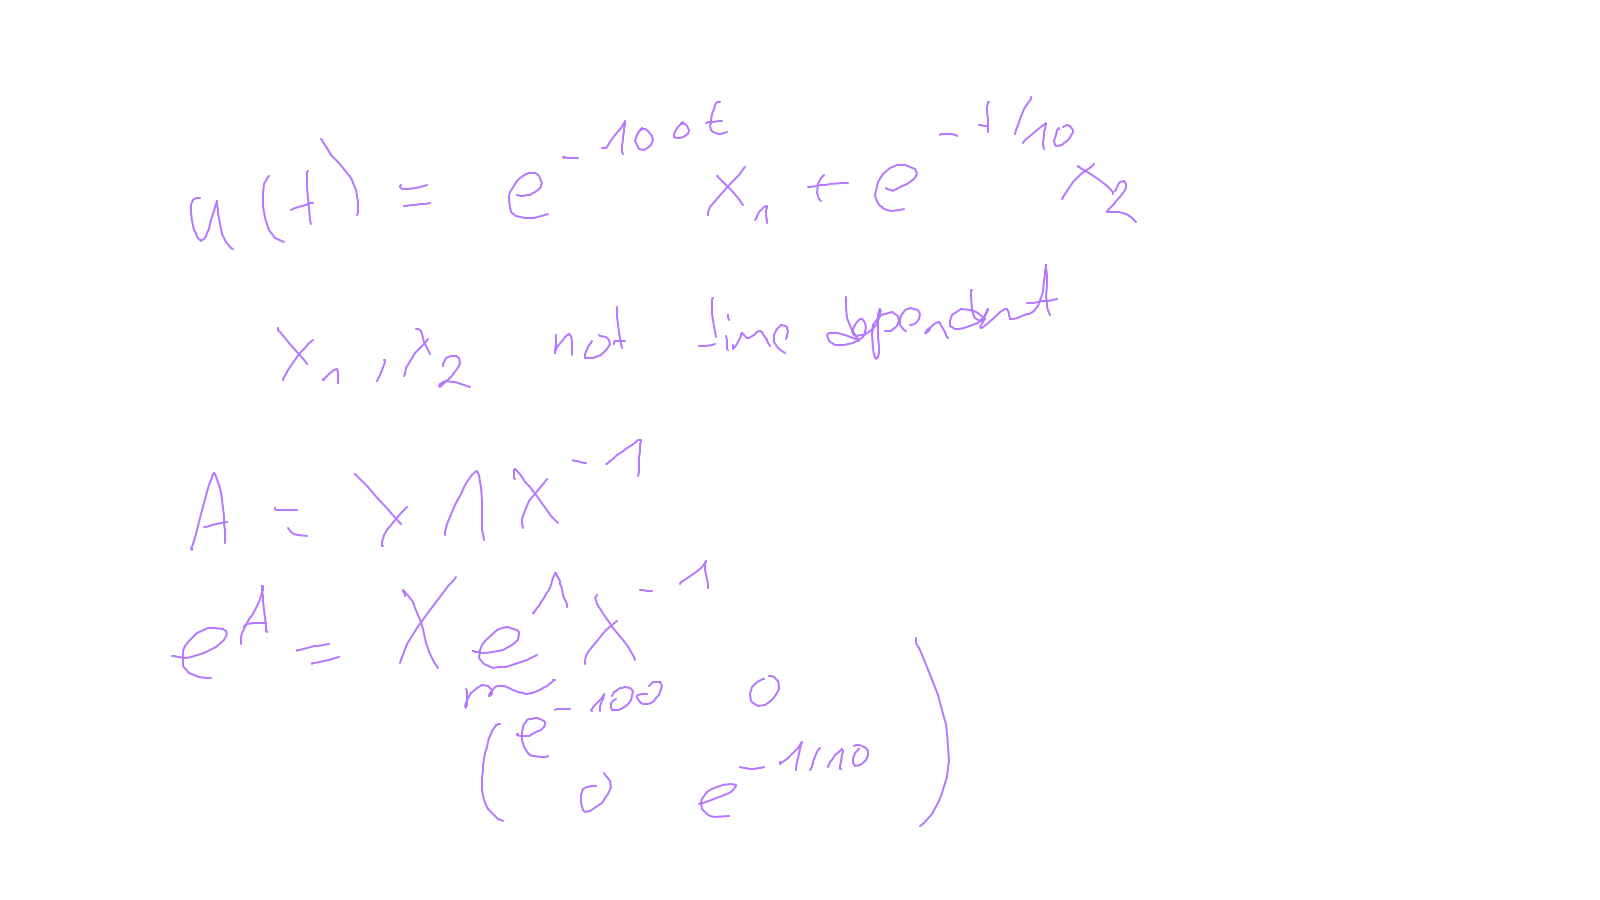 u(t) = e^{-100t} x_1 + e^{-t/10} x_2
x_1, x_2 not time dependent
A = X Λ X^{-1}
e^A = X e^Λ X^{-1}
( e^{-100} 0
0 e^{-1/10} )